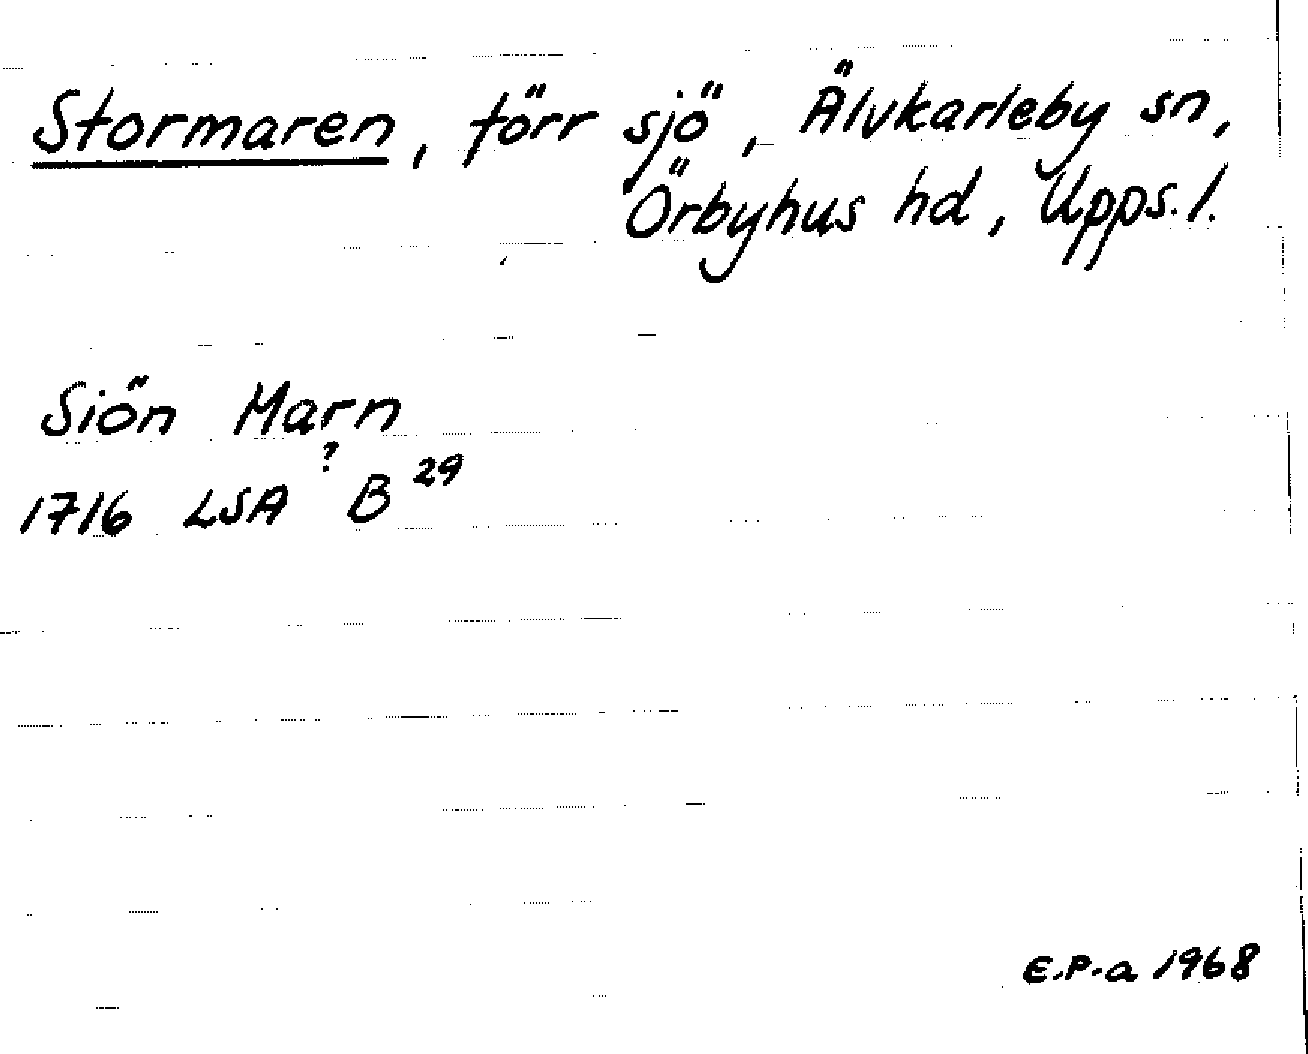 Stormaren, förr sjö, Älvkarleby sn,
Örbyhus hd, Upps. l.
Siön Marn
?
1716 LSA B 29
E.P-a 1968